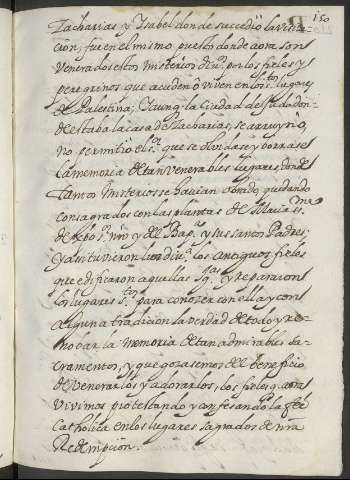 150
Zacharias y Ysabel donde sucedió la visita
cion; fue en el mismo puesto donde aora son
venerados estos misterios por los fieles y
peregrinos que acuden ô viven en los stos lugares
de Palestina; Y aunq la Ciudad del Juda don-
de estaba la casa de Zacharias, se arruynò,
no permitiò el Sr que se olvidase y borrase
la memoria de tan venerables lugares, donde
tantos misterios se havian obrado, quedando
consagrados con las plantas de Maria sma
de Xpo Sr nro y del Bapta y sus santos Padres;
Y asi tuvieron los antiguos fieles
que edificaron aquellas Ygas y repararon
los lugares stos para conozer con ella y con
alguna tradicion la verdad de todo y re-
nobar la memoria de tan admirables Sa-
cramentos, y que gozasemos del beneficio
de venerarlos y adorarlos, los fieles q aora
vivimos protestando y confesando la feè
Catholica en los lugares sagrados de nra
Redempcion.